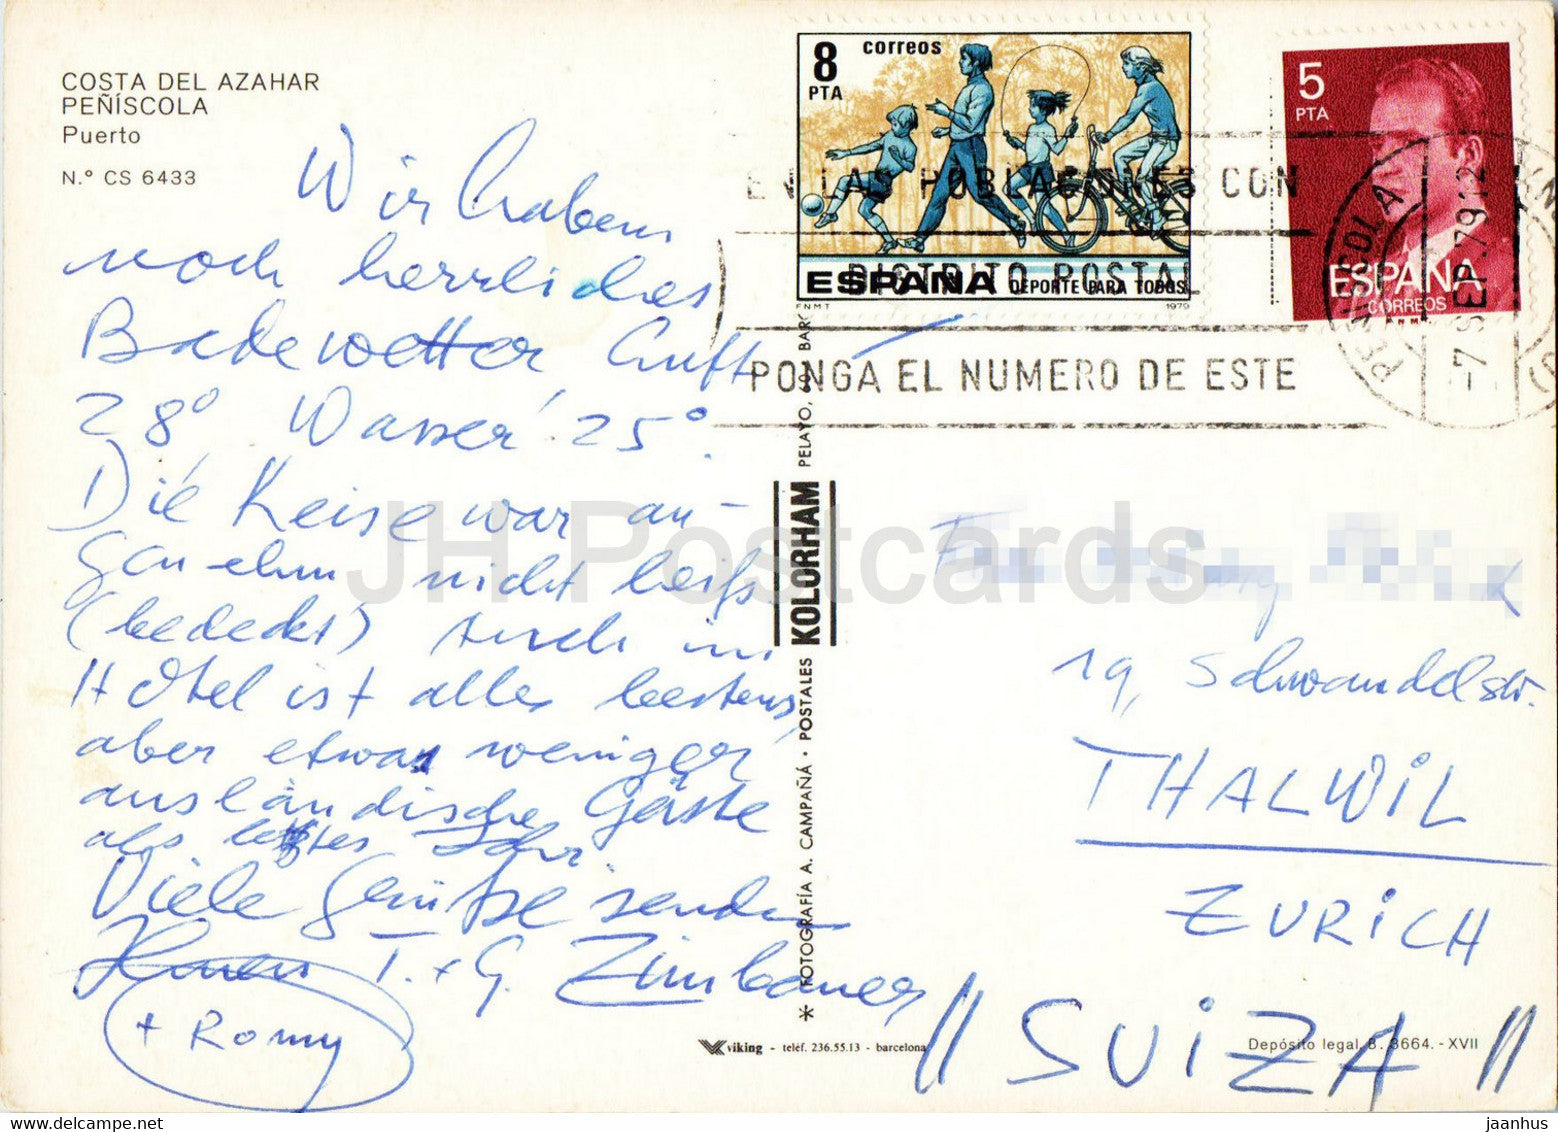 COSTA DEL AZAHAR
PEÑÍSCOLA
Puerto
N.° CS 6433
Wir haben
noch herrliches
Badewetter Luft
28° Wasser 25°.
Die Reise war an-
genehm, nicht heiß
(bedeckt) Auch im
Hotel ist alles bestens,
aber etwas weniger
ausländische Gäste
als letztes Jahr
Viele Grüße senden
T. + G. Zimbauer
+ Romy
8
PTA
correos
ESPAÑA DEPORTE PARA TODOS
FNMT 1979
5
PTA
ESPAÑA
CORREOS
EN LAS POBLACIONES CON
DISTRITO POSTAL
PONGA EL NUMERO DE ESTE
PEÑISCOLA
-7 SEP. 79 12
* FOTOGRAFÍA A. CAMPAÑÁ · POSTALES KOLORHAM PELAYO,
JH Postcards
19, Schwandelstr.
THALWIL
ZURICH
"SUIZA"
viking - teléf. 236.55.13 - barcelona
Depósito legal, B. 3664. - XVII
jaanhus